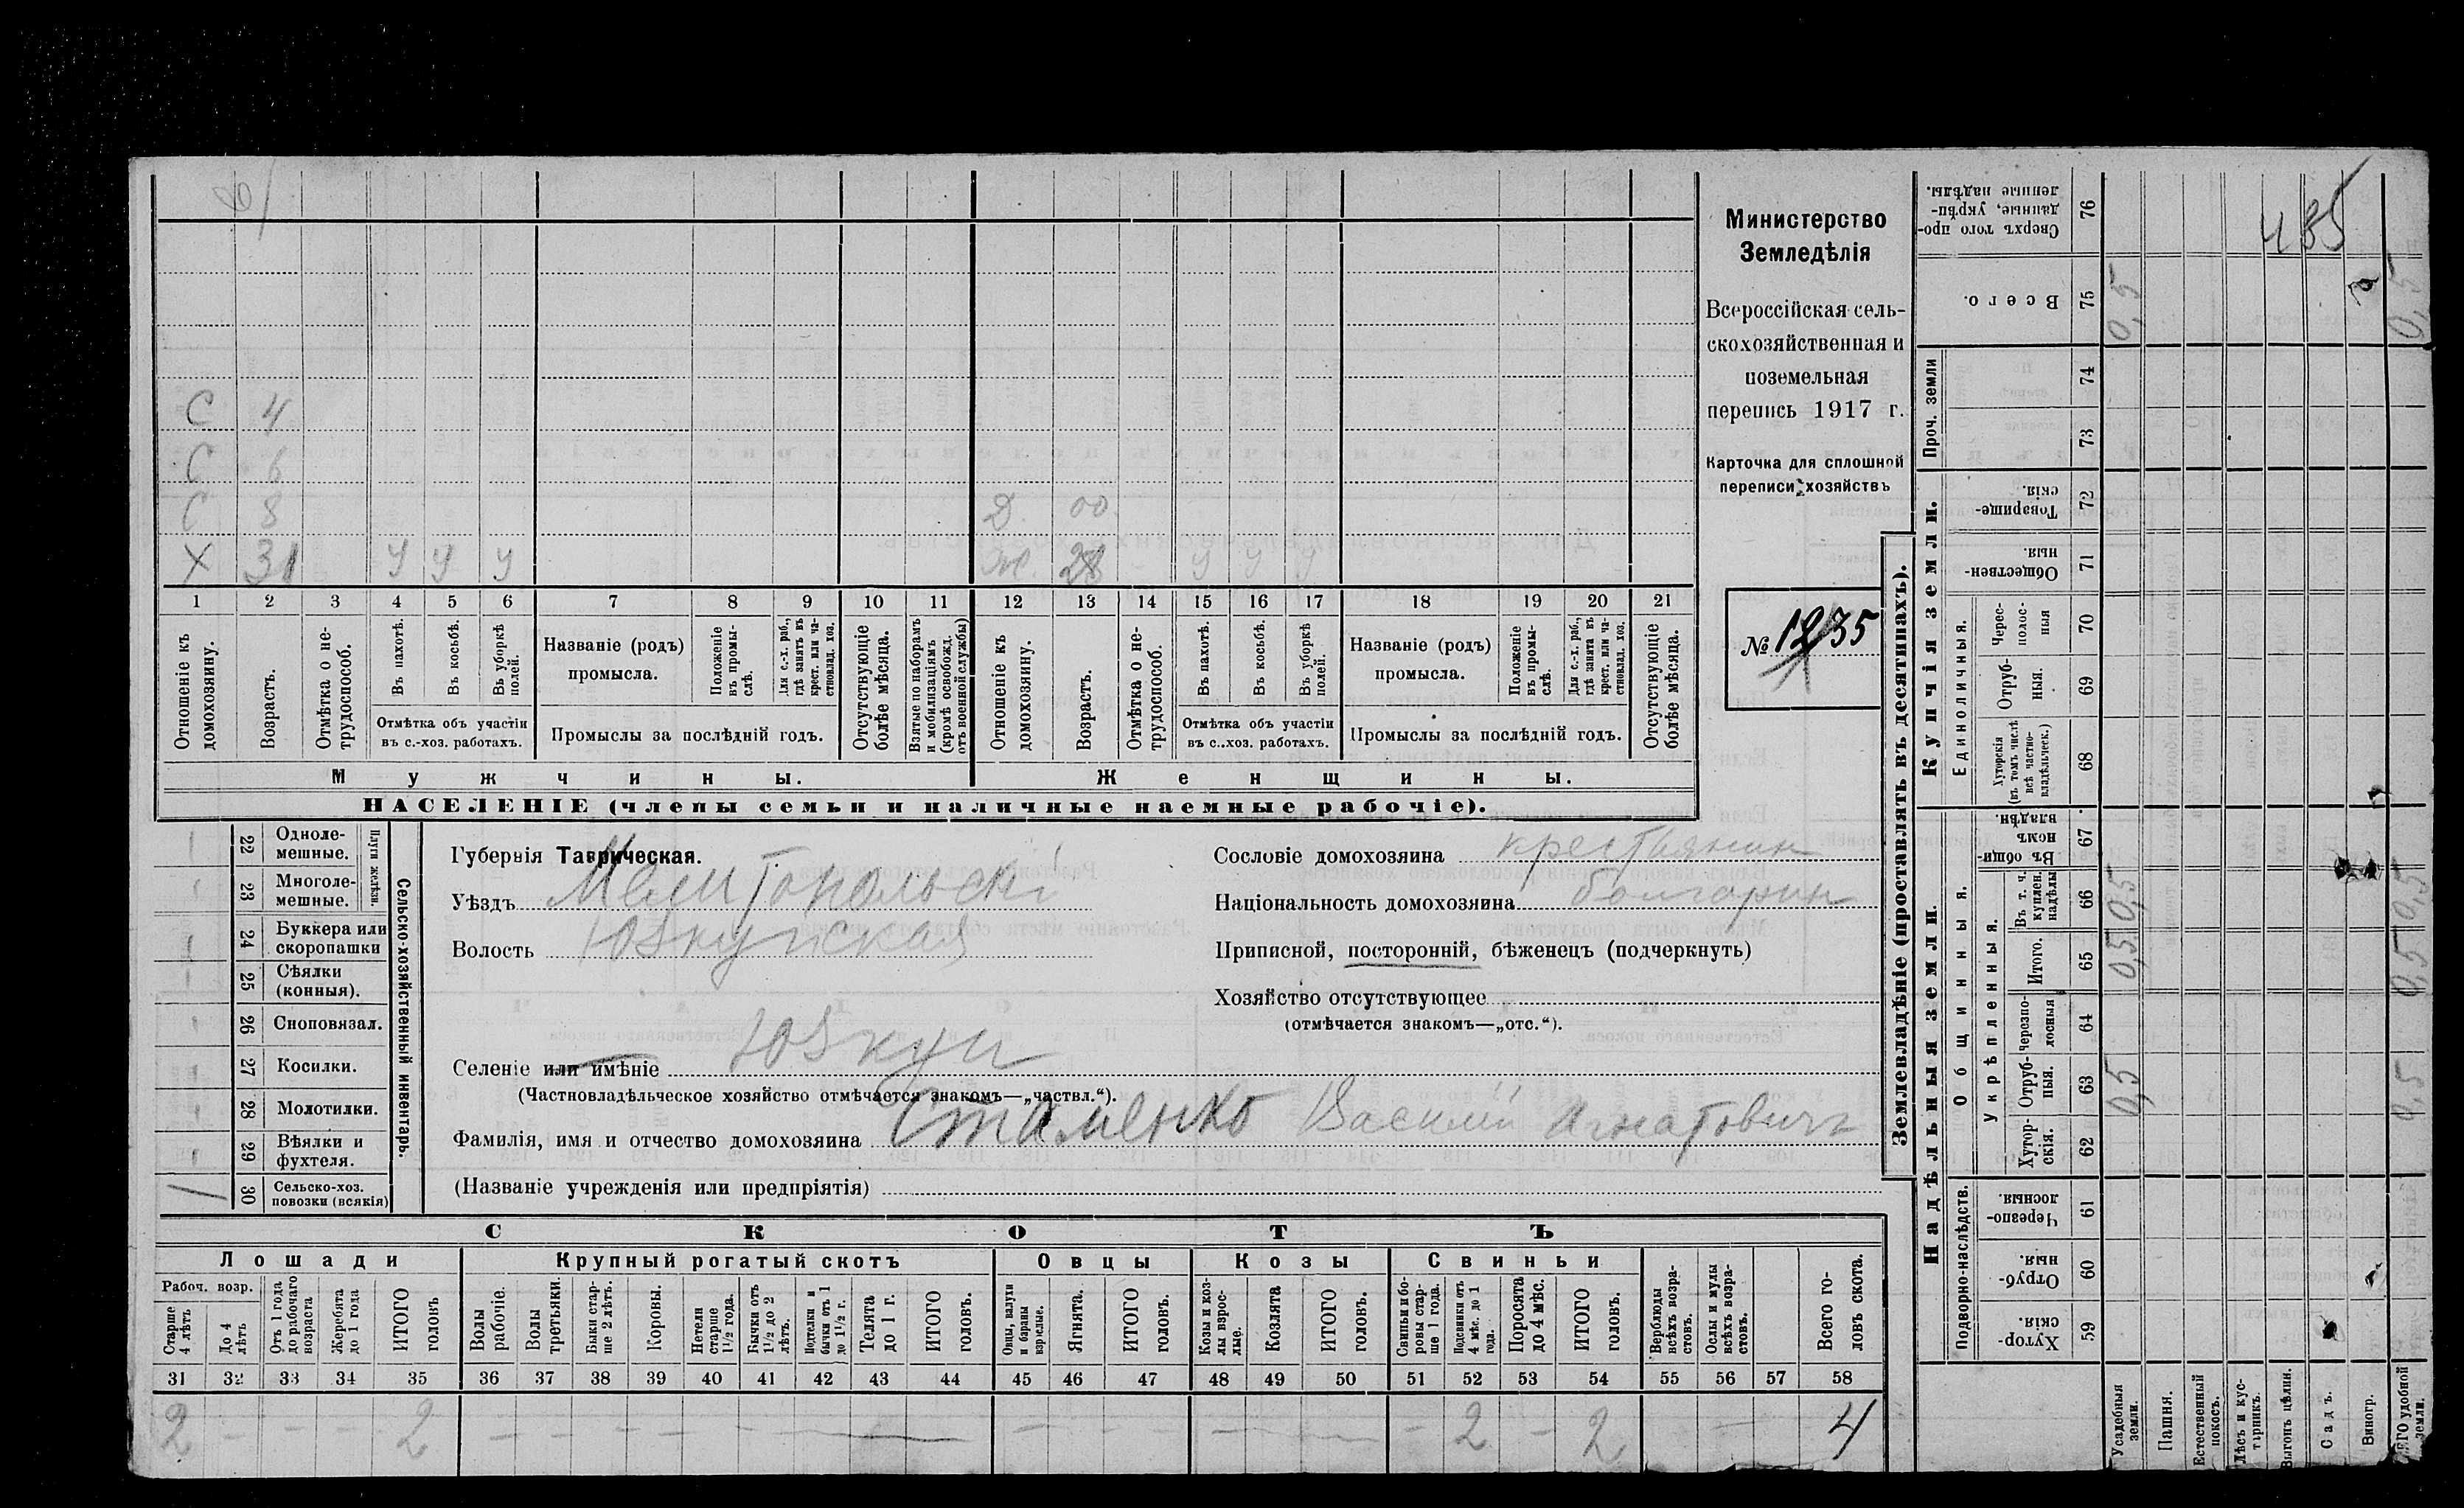 485
С 4
С 6
С 8 Д. 00
Х 31 у у у Ж 28 у у у
1 2 3 4 5 6 7 8 9 10 11 12 13 14 15 16 17 18 19 20 21
Отношеніе къ домохозяину.
Возрастъ.
Отмѣтка о нетрудоспособ.
Въ пахотѣ.
Въ косьбѣ.
Въ уборкѣ полей.
Отмѣтка объ участіи
въ с.-хоз. работахъ.
Названіе (родъ)
промысла.
Положеніе въ промыслѣ.
Для с.-х. раб., гдѣ занятъ въ крест. или частновлад. хоз.
Промыслы за послѣдній годъ.
Отсутствующіе болѣе мѣсяца.
Взятые по наборамъ и мобилизаціямъ (кромѣ освобожд. отъ военной службы)
Отношеніе къ домохозяину.
Возрастъ.
Отмѣтка о нетрудоспособ.
Въ пахотѣ.
Въ косьбѣ.
Въ уборкѣ полей.
Отмѣтка объ участіи
въ с.-хоз. работахъ.
Названіе (родъ)
промысла.
Положеніе въ промыслѣ.
Для с.-х. раб., гдѣ занята въ крест. или частновлад. хоз.
Промыслы за послѣдній годъ.
Отсутствующіе болѣе мѣсяца.
Мужчины.
Женщины.
НАСЕЛЕНІЕ (члены семьи и наличные наемные рабочіе).
Министерство
Земледѣлія
Всероссійская сель-
скохозяйственная и
поземельная
перепись 1917 г.
Карточка для сплошной
переписи хозяйствъ
№ 1235
Сельско-хозяйственный инвентарь.
Плуги желѣзн.
22 Одноле-
мешные.
23 Многоле-
мешные.
24 Буккера или
скоропашки
25 Сѣялки
(конныя).
26 Сноповязал.
27 Косилки.
28 Молотилки.
29 Вѣялки и
фухтеля.
30 Сельско-хоз.
повозки (всякія)
1
Губернія Таврическая.
Уѣздъ Мелитопольскі
Волость Юзкуйская
Селеніе или имѣніе Юзкуи
(Частновладѣльческое хозяйство отмѣчается знакомъ—„частвл.“).
Фамилія, имя и отчество домохозяина Стаменко Василій Игнатовичъ
(Названіе учрежденія или предпріятія)
Сословіе домохозяина крестьянин
Національность домохозяина болгарин
Приписной, посторонній, бѣженецъ (подчеркнуть)
Хозяйство отсутствующее
(отмѣчается знакомъ—„отс.“).
СКОТЪ
Лошади
Крупный рогатый скотъ
Овцы
Козы
Свиньи
Рабоч. возр.
Старше 4 лѣтъ
До 4 лѣтъ
Отъ 1 года до рабочаго возраста
Жеребята до 1 года
ИТОГО головъ
Волы рабочіе.
Волы третьяки.
Быки старше 2 лѣтъ.
Коровы.
Нетели старше 1½ года.
Бычки отъ 1½ до 2 лѣтъ.
Подтелки и бычки отъ 1 до 1½ г.
Телята до 1 г.
ИТОГО головъ.
Овцы, валухи и бараны взрослые.
Ягнята.
ИТОГО головъ.
Козы и козлы взрослые.
Козлята
ИТОГО головъ.
Свиньи и боровы старше 1 года.
Подсвинки отъ 4 мѣс. до 1 года.
Поросята до 4 мѣс.
ИТОГО головъ.
Верблюды всѣхъ возрастовъ.
Ослы и мулы всѣхъ возрастовъ.
Всего головъ скота.
31 32 33 34 35 36 37 38 39 40 41 42 43 44 45 46 47 48 49 50 51 52 53 54 55 56 57 58
2 – – – 2 – – – – – – – – – – – – – – – – 2 – 2 – 4
Землевладѣніе (проставлять въ десятинахъ).
Надѣльныя земли.
Купчія земли.
Проч. земли
Подворно-наслѣдств.
Общинныя.
Укрѣпленныя.
Единоличныя.
Хуторскія. 59
Отрубныя. 60
Черезполосныя. 61
Хуторскія. 62
Отрубныя. 63
Черезполосныя 64
Итого. 65
Въ т. ч. куплен. надѣлы 66
Въ общинномъ владѣн. 67
Хуторскія (въ томъ числѣ всѣ частновладѣльческ.) 68
Отрубныя. 69
Чересполосныя 70
Общественныя. 71
Товарищескія. 72
73
74
Всего. 75
Сверхъ того проданные, укрѣпленные надѣлы. 76
Усадебныя земли. 0,5 0,5 0,5 0,5
Пашня.
Естественный покосъ.
Лѣсъ и кустарникъ.
Выгонъ цѣлин.
Садъ.
Виногр.
ВСЕГО удобной земли. 0,5 0,5 0,5 0,5